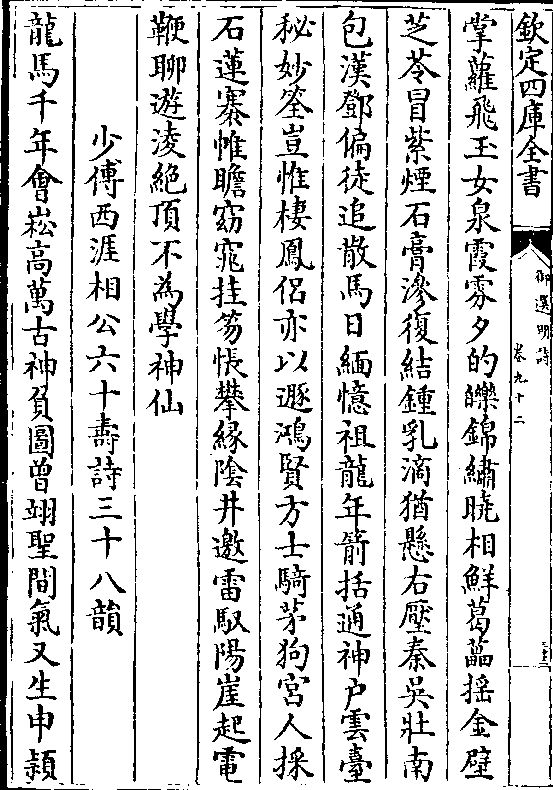 欽定四庫全書
御選明詩
卷九十二
三十三
掌蘿飛玉女泉霞雰夕的皪錦繡曉相鮮葛藟揺金壁
芝苓冒紫煙石膏滲復結鍾乳滴猶懸右壓秦吳壯南
包漢鄧偏徒追散馬日緬憶祖龍年箭括通神户雲臺
秘妙筌豈惟棲鳳侣亦以遯鴻賢方士騎茅狗宮人採
石蓮褰帷瞻窈窕挂笏悵攀緣陰井邀雷馭陽崖起電
鞭聊遊淩絶頂不為學神仙
少傅西涯相公六十壽詩三十八韻
龍馬千年會崧高萬古神負圖曾翊聖間氣又生申潁